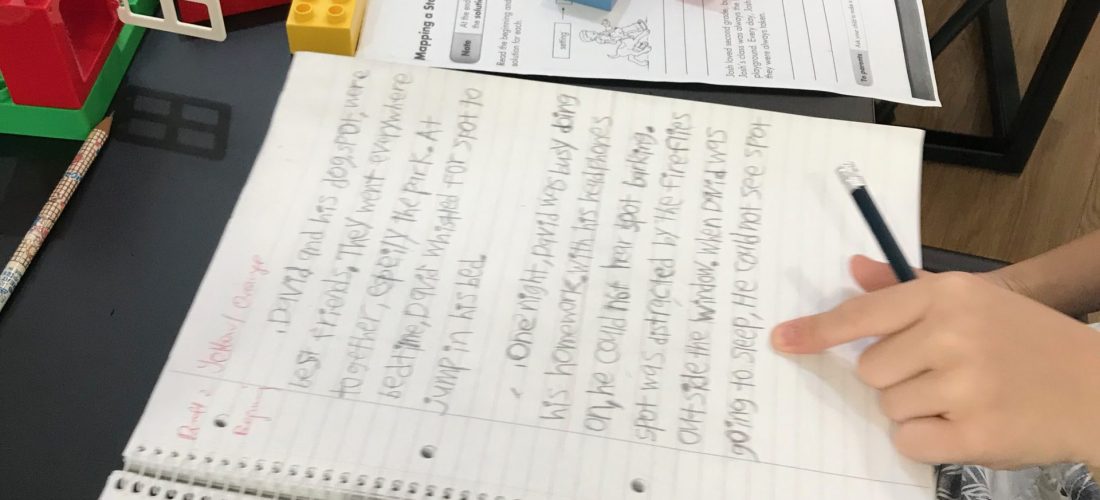 Mapping a Sto
Note
At the end
the solution
Read the beginning and
solution for each.
setting
Josh loved second grade, bu
Josh's class was always the
playground. Every day, Josh
they were always taken.
To parents
Draft 2 Yellow/Orange
David and his dog, spot, were
best friends. They went everywhere
together, epeilly the park. At
bedtime, David whistled for spot to
jump in his bed.
One night, David was busy doing
his homework, with his headphones
on, he could not hear spot barking.
spot was distracted by the fireflies
outside the window. when David was
going to sleep, He could not see spot